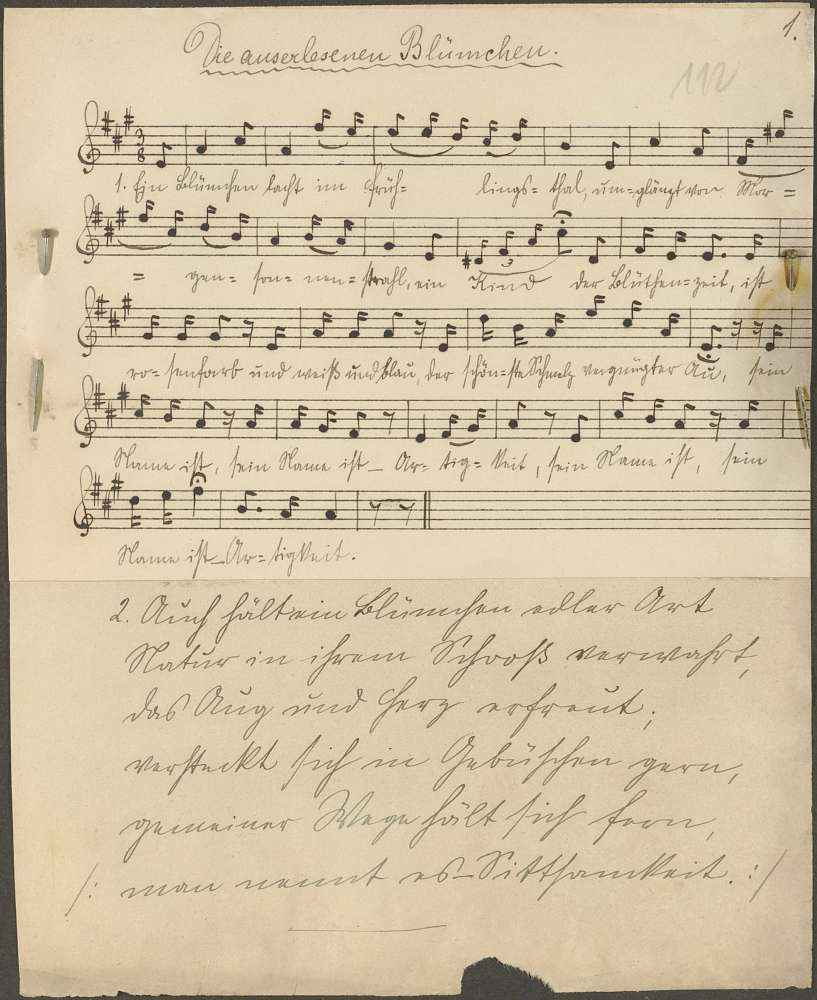 1.
Die auserlesenen Blümchen.
112
3
8
1. Ein Blümchen lacht im Früh= lings= thal, um=glänzt von Mor =
= gen= son= nen= strahl, ein Kind der Blüthen=zeit, ist
3
ro= senfarb und weiß und blau, der schön=ste Schmelz vergnügter Au, sein
Name ist, sein Name ist – Ar= tig= keit, sein Name ist, sein
Name ist – Ar= tigkeit.
2. Auch hält ein Blümchen edler Art
Natur in ihrem Schooß verwahrt,
das Aug und Herz erfreut;
versteckt sich in Gebüschen gern,
gemeiner Wege hält sich fern,
/: man nennt es – Sittsamkeit. :/